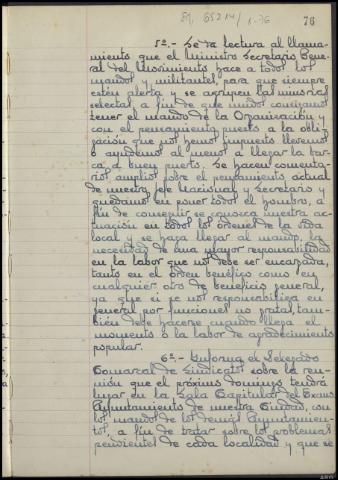 81, 65214/1-76
76
5º.- Se da lectura al llama-
miento que el Ministro Secretario Gene-
ral del Movimiento hace a todos los
mandos y militantes, para que siempre
estén alerta y se agrupen las minorías
selectas a fin de que unidos consigamos
tener el mando de la Organización y
con el pensamiento puesto a la obli-
gación que nos hemos impuesto llevemos
o ayudemos al menos a llegar la bar-
ca a buen puerto. Se hacen comenta-
rios amplios sobre el pensamiento actual
de nuestro jefe Nacional y Secretario y
quedamos en poner todos el hombro, a
fin de conseguir se conozca nuestra ac-
tuación en todos los órdenes de la vida
local y se haga llegar al mando, la
necesidad de una mayor responsabilidad
en la labor que nos debe ser encargada,
tanto en el orden benéfico como en
cualquier otro de beneficio general,
ya que si se nos responsabiliza en
general por funciones no gratas, tam-
bién debe hacerse cuando llega el
momento a la labor de agradecimiento
popular.
6º.- Informa el Delegado
Comarcal de Sindicatos sobre la reu-
nión que el próximo domingo tendrá
lugar en la Sala Capitular del Excmo.
Ayuntamiento de nuestra Ciudad, con
los mandos de los demás Ayuntamien-
tos, a fin de tratar sobre los problemas
pendientes de cada localidad y que se